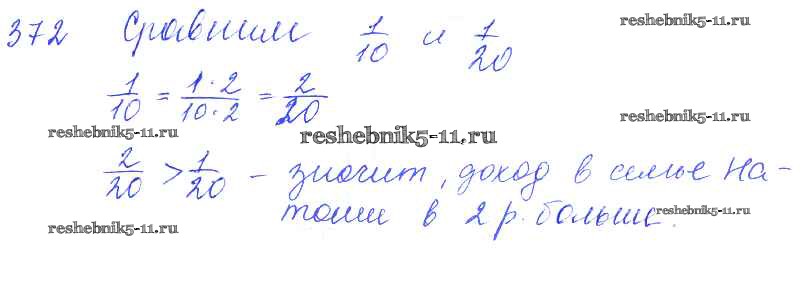 372 Сравним 1/10 и 1/20
reshebnik5-11.ru
1/10 = 1·2/10·2 = 2/20
reshebnik5-11.ru
reshebnik5-11.ru
reshebnik5-11.ru
2/20 > 1/20 - значит, доход в семье На-
таши в 2 р. больше.
reshebnik5-11.ru
reshebnik5-11.ru